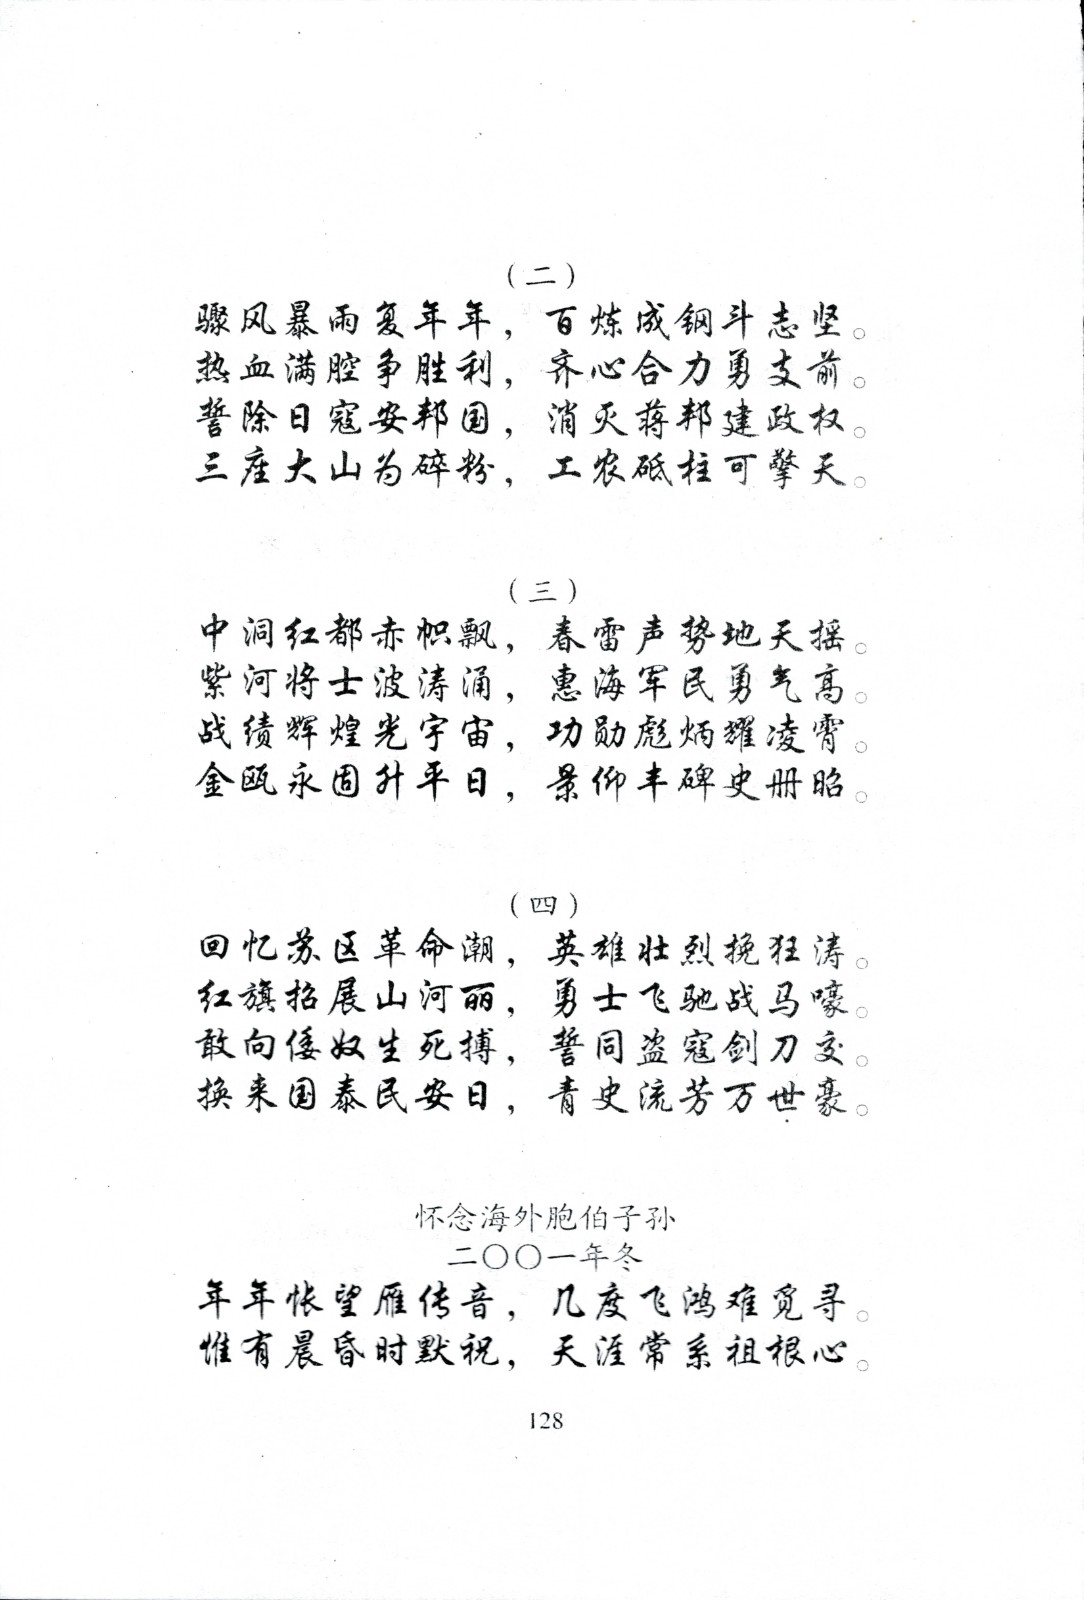 （二）
骤风暴雨复年年，百炼成钢斗志坚。
热血满腔争胜利，齐心合力勇支前。
誓除日寇安邦国，消灭蒋邦建政权。
三座大山为碎粉，工农砥柱可擎天。
（三）
中洞红都赤帜飘，春雷声势地天摇。
紫河将士波涛涌，惠海军民勇气高。
战绩辉煌光宇宙，功勋彪炳耀凌霄。
金瓯永固升平日，景仰丰碑史册昭。
（四）
回忆苏区革命潮，英雄壮烈挽狂涛。
红旗招展山河丽，勇士飞驰战马嚎。
敢向倭奴生死搏，誓同盗寇剑刀交。
换来国泰民安日，青史流芳万世豪。
怀念海外胞伯子孙
二〇〇一年冬
年年怅望雁传音，几度飞鸿难觅寻。
惟有晨昏时默祝，天涯常系祖根心。
128